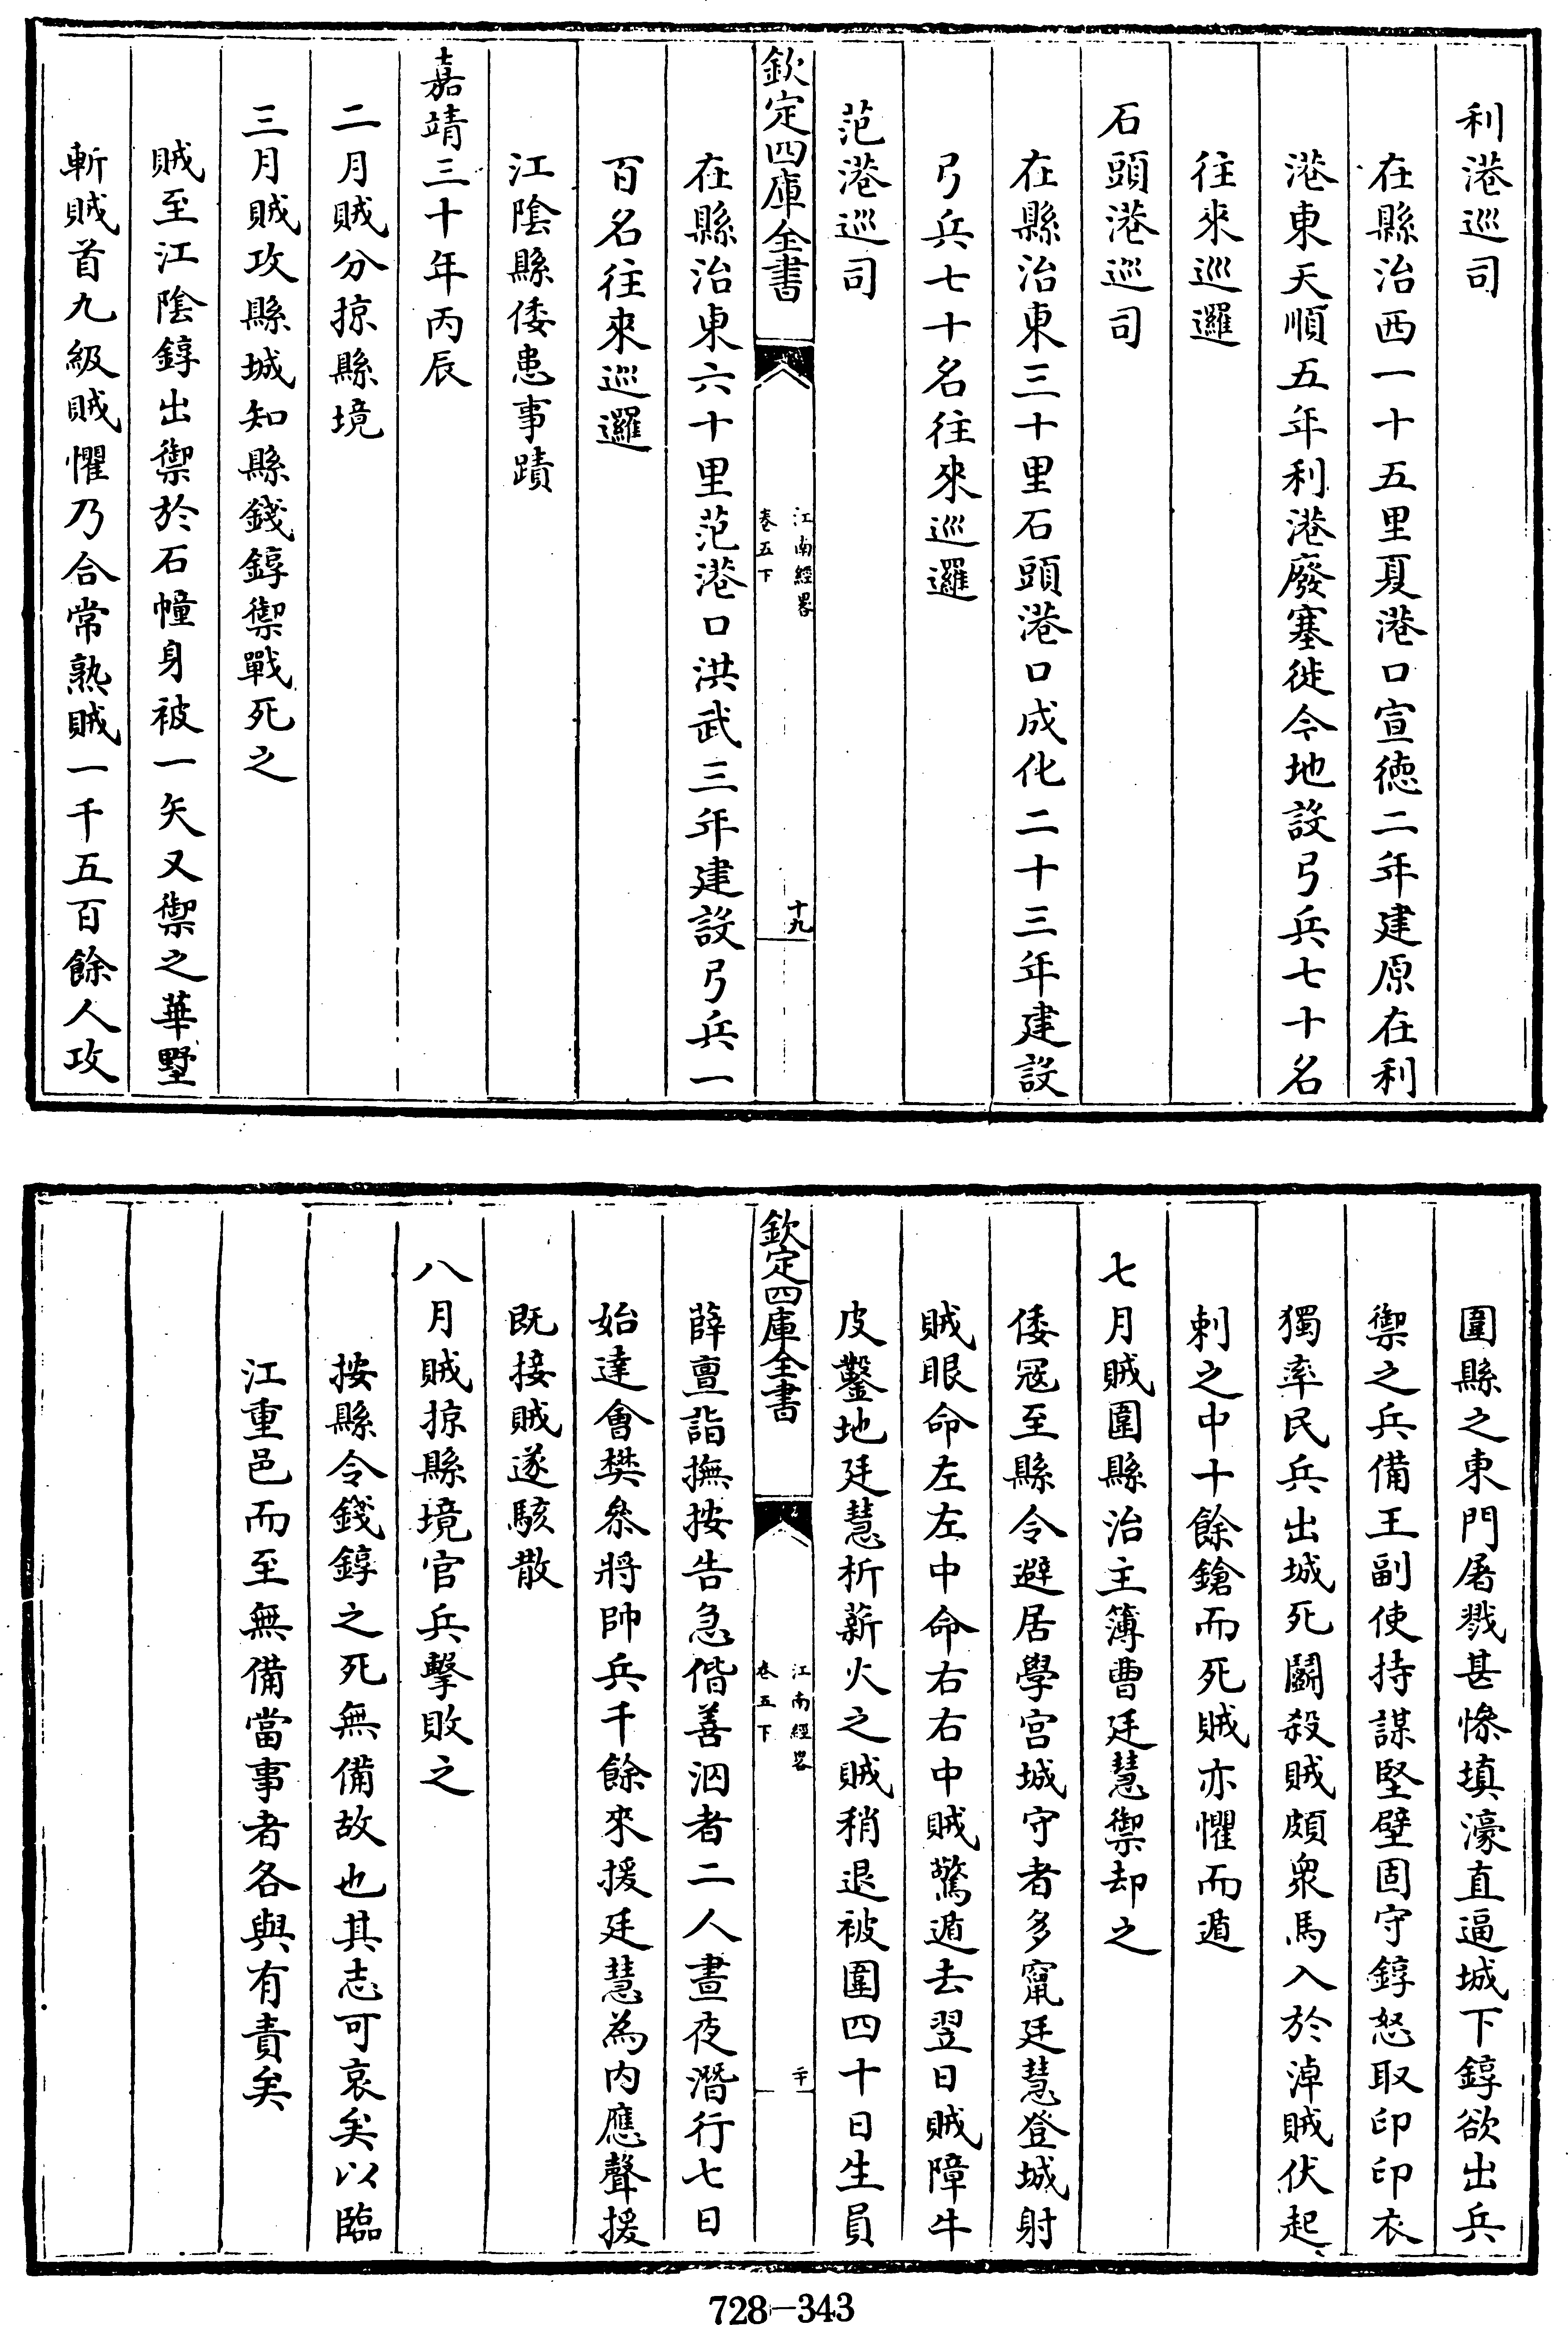 利港巡司
在縣治西一十五里夏港口宣徳二年建原在利
港東天順五年利港廢塞徙今地設弓兵七十名
往來巡邏
石頭港巡司
在縣治東三十里石頭港口成化二十三年建設
弓兵七十名往來巡邏
范港巡司
欽定四庫全書
江南經畧
卷五下
十九
在縣治東六十里范港口洪武三年建設弓兵一
百名往來巡邏
江陰縣倭患事蹟
嘉靖三十年丙辰
二月賊分掠縣境
三月賊攻縣城知縣錢錞禦戰死之
賊至江陰錞出禦於石幢身被一矢又禦之華墅
斬賊首九級賊懼乃合常熟賊一千五百餘人攻
圍縣之東門屠戮甚慘填濠直逼城下錞欲出兵
禦之兵備王副使持謀堅壁固守錞怒取印印衣
獨率民兵出城死鬭殺賊頗衆馬入於淖賊伏起
刺之中十餘鎗而死賊亦懼而遁
七月賊圍縣治主簿曹廷慧禦却之
倭冦至縣令避居學宫城守者多竄廷慧登城射
賊眼命左左中命右右中賊驚遁去翌日賊障牛
皮鑿地廷慧析薪火之賊稍退被圍四十日生員
欽定四庫全書
江南經畧
卷五下
二十
薛亶詣撫按告急偕善泅者二人晝夜潛行七日
始達會樊叅將帥兵千餘來援廷慧為内應聲援
既接賊遂駭散
八月賊掠縣境官兵擊敗之
按縣令錢錞之死無備故也其志可哀矣以臨
江重邑而至無備當事者各與有責矣
728-343